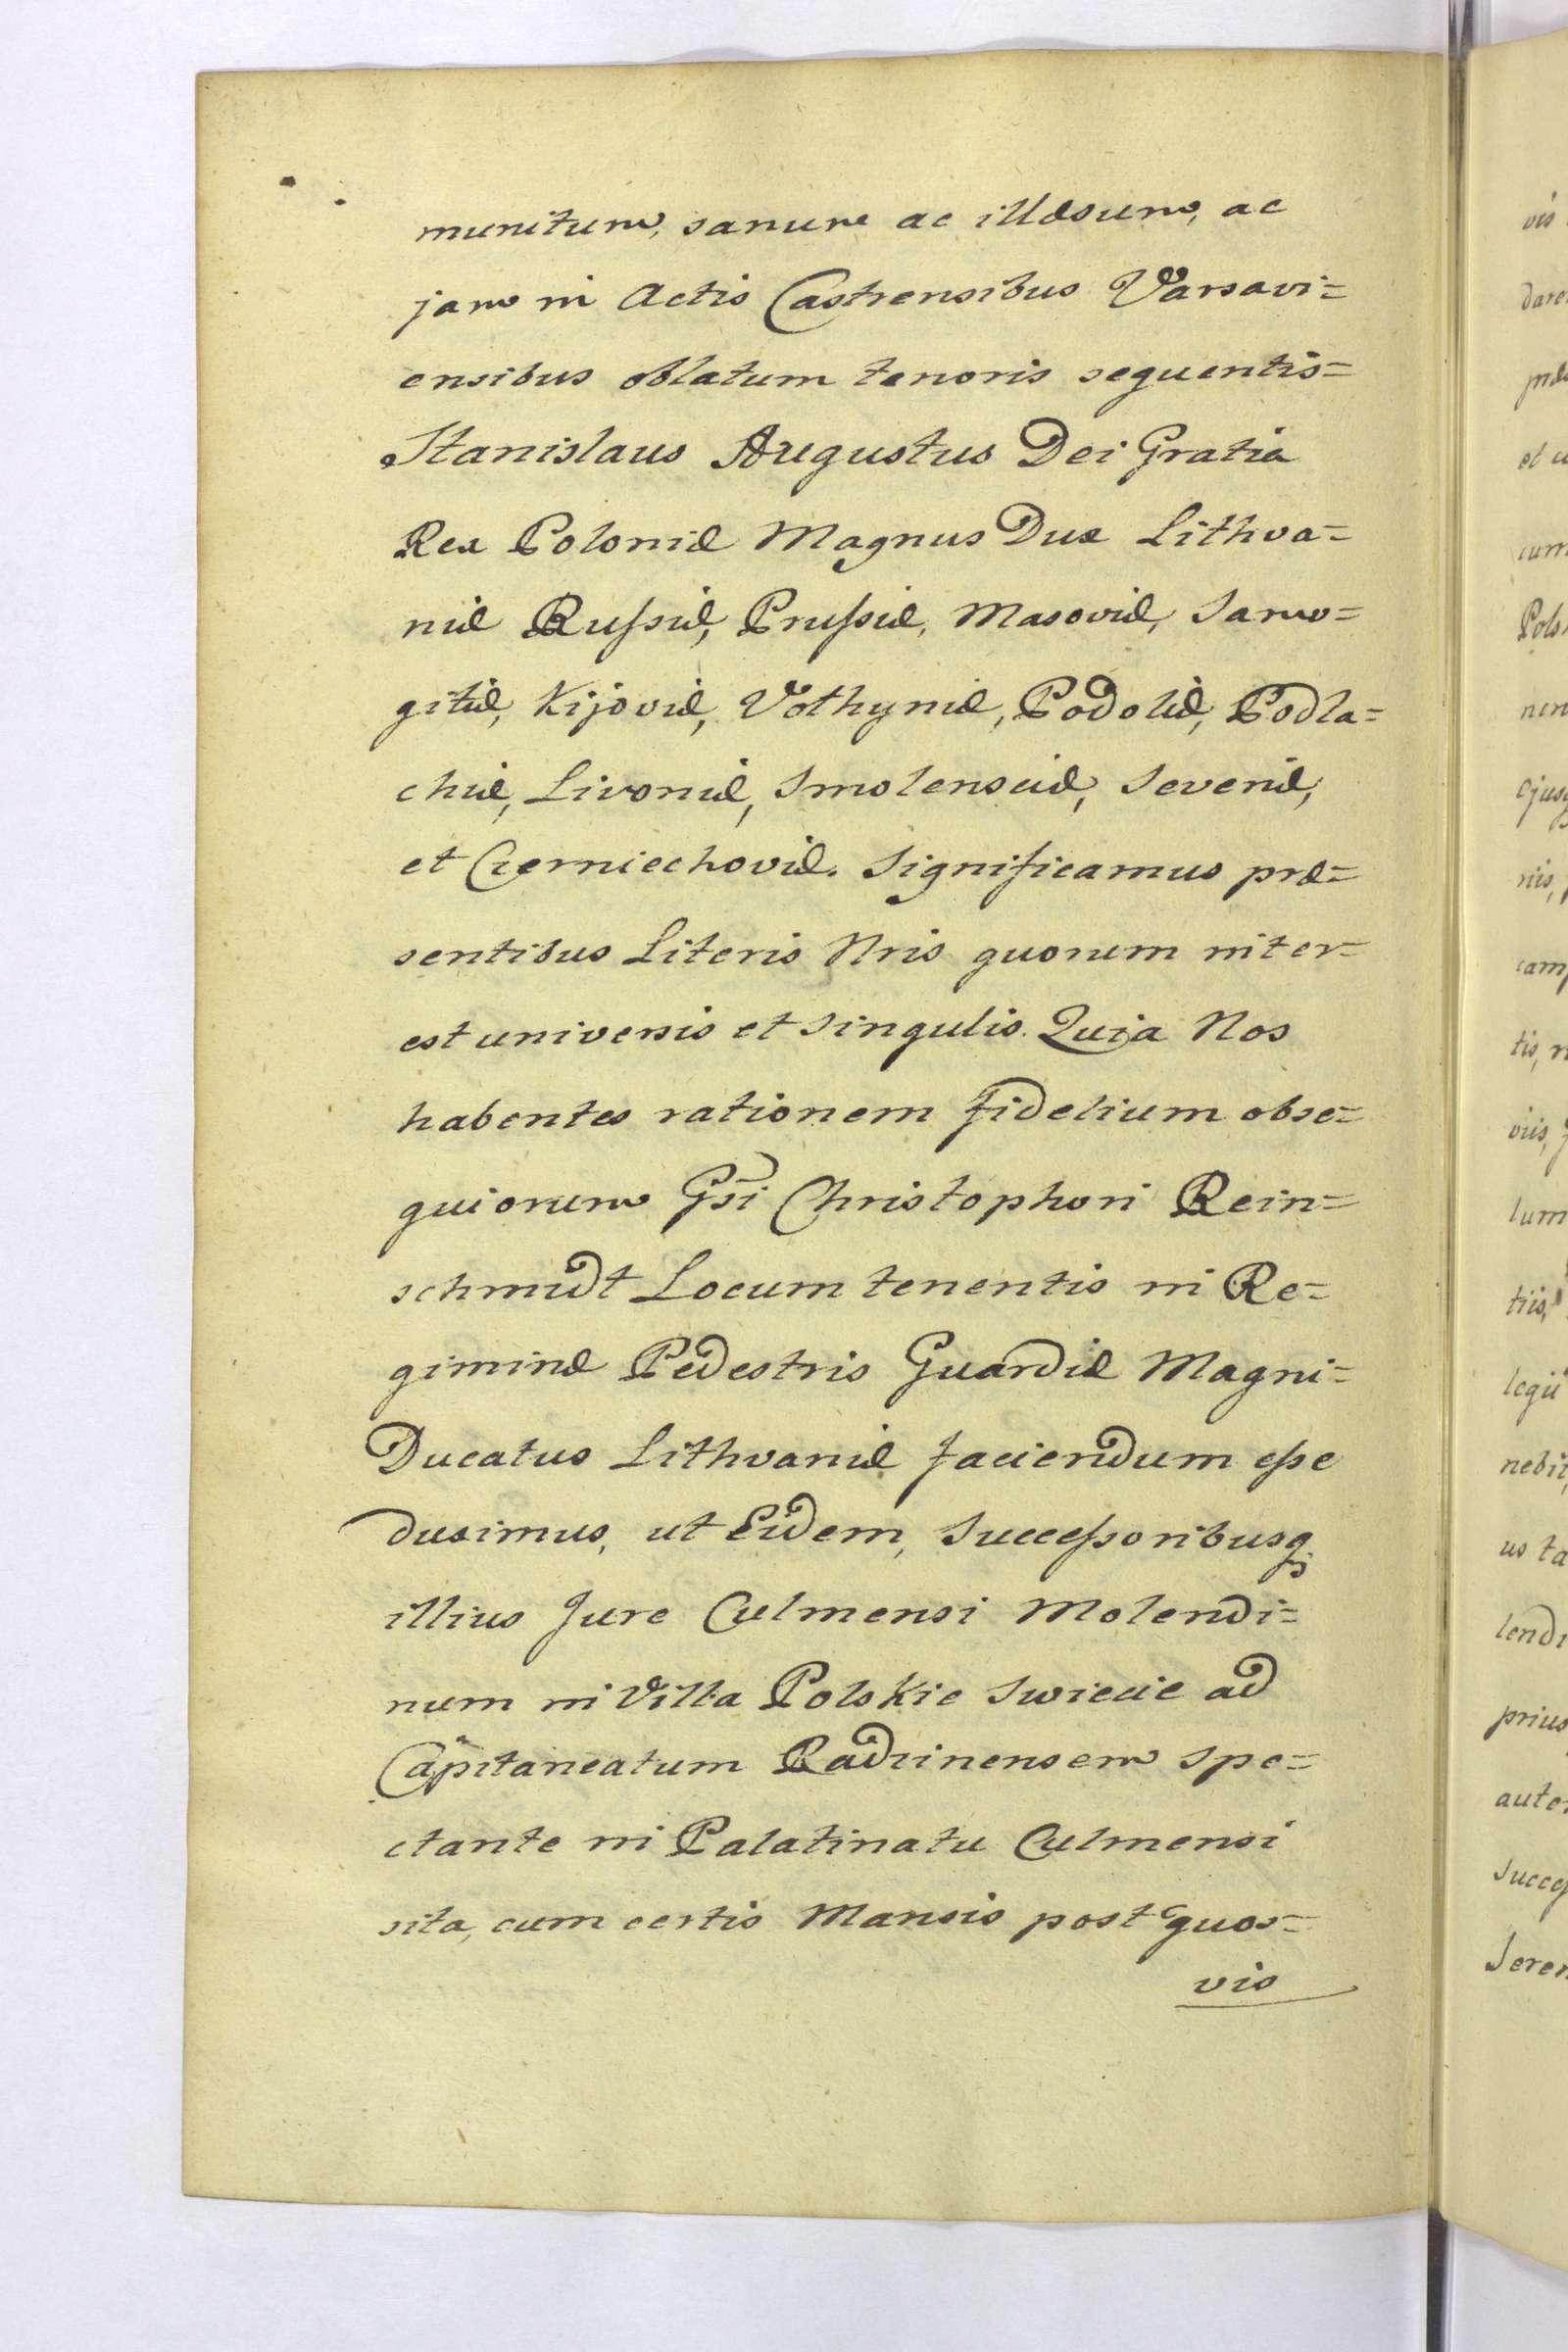 munitum, sanum ac illæsum, ac
jam in Actis Castrensibus Varsavi=
ensibus oblatum tenoris sequentis=
Stanislaus Augustus Dei Gratia
Rex Poloniæ Magnus Dux Lithva=
niæ Russiæ, Prussiæ, Masoviæ, Samo=
gitiæ, Kijoviæ, Volhyniæ, Podoliæ, Podla=
chiæ, Livoniæ, Smolensciæ, Severiæ,
et Czerniechoviæ. Significamus præ=
sentibus Literis Nris quorum inter=
est universis et singulis. Quia Nos
habentes rationem fidelium obse=
quiorum Gsi Christophori Rein=
schmidt Locum tenentis in Re=
gimine Pedestris Guardiæ Magni=
Ducatus Lithvaniæ faciendum esse
duximus, ut Eidem, Successoribusq;
illius Jure Culmensi Molendi=
num in Villa Polskie Swiecie ad
Capitaneatum Radzinensem spe=
ctante in Palatinatu Culmensi
sita, cum certis Mansis post quos=
vis
vis
dare
præ
et u
cum
Pols
nen
ejusq
riis,
cam
tis, n
viis,
lum
tiis,
legii
nebit
us ta
lendi
prius
aute
Success
Seren